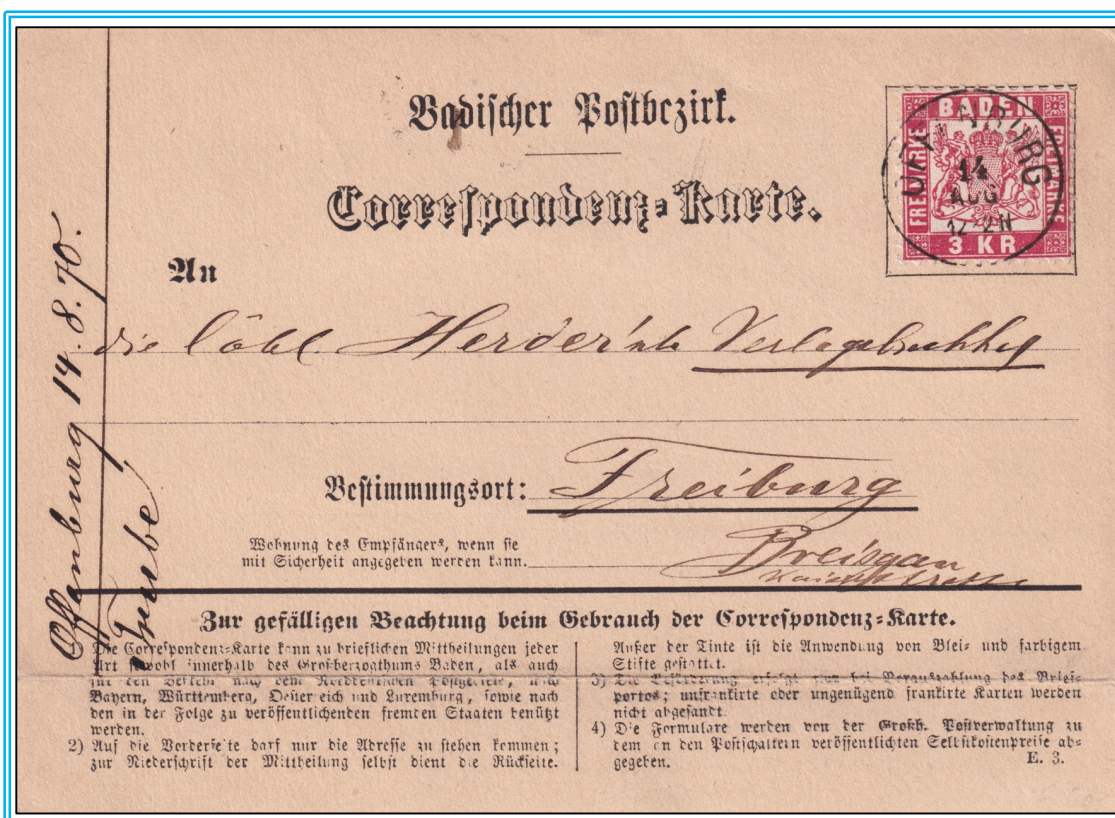 Badischer Postbezirk.
Correspondenz-Karte.
BADEN
FREIMARKE
FREIMARKE
3 KR
OFFENBURG
14
AUG
12-2N
An
die löbl. Herder'sche Verlagsbuchhdg
Bestimmungsort: Freiburg
Wohnung des Empfängers, wenn sie
mit Sicherheit angegeben werden kann.
Breisgau
Offenburg 14.8.70.
Zur gefälligen Beachtung beim Gebrauch der Correspondenz-Karte.
1) Die Correspondenz-Karte kann zu brieflichen Mittheilungen jeder
Art sowohl innerhalb des Großherzogthums Baden, als auch
für den Verkehr nach dem Norddeutschen Postgebiete, nach
Bayern, Württemberg, Oesterreich und Luxemburg, sowie nach
den in der Folge zu veröffentlichenden fremden Staaten benützt
werden.
2) Auf die Vorderseite darf nur die Adresse zu stehen kommen;
zur Niederschrift der Mittheilung selbst dient die Rückseite.
Außer der Tinte ist die Anwendung von Blei- und farbigem
Stifte gestattet.
3) Die Beförderung erfolgt nur bei Vorauszahlung des Brief-
portos; unfrankirte oder ungenügend frankirte Karten werden
nicht abgesandt.
4) Die Formulare werden von der Großh. Postverwaltung zu
dem an den Postschaltern veröffentlichten Selbstkostenpreise ab-
gegeben.
E. 3.